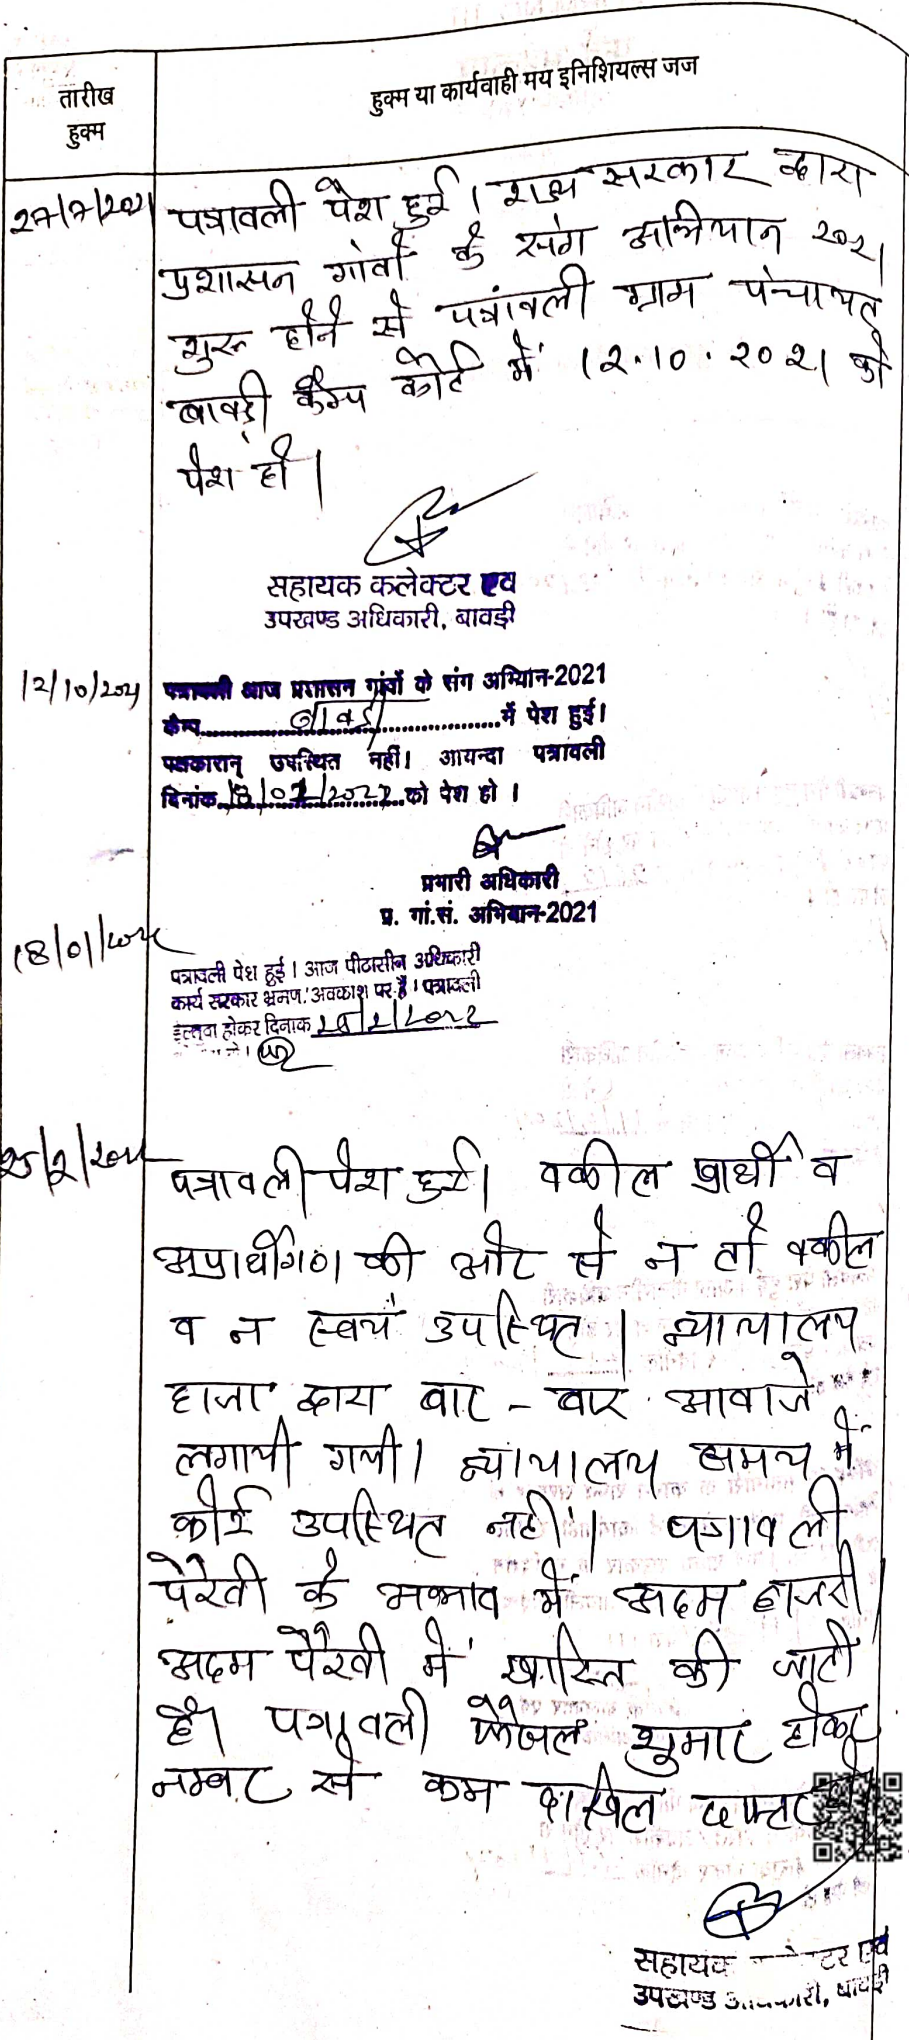 तारीख
हुक्म
हुक्म या कार्यवाही मय इनिशियल्स जज
27/7/2021
पत्रावली पेश हुई। राज्य सरकार द्वारा
प्रशासन गांवों के संग अभियान 2021
शुरू होने से पत्रावली ग्राम पंचायत
बावड़ी कैम्प कोर्ट में 12.10.2021 को
पेश हो।
सहायक कलेक्टर एवं
उपखण्ड अधिकारी, बावड़ी
12/10/2021
पत्रावली आज प्रशासन गांवों के संग अभियान-2021
कैम्प..........बावड़ी..........में पेश हुई।
पक्षकारान् उपस्थित नहीं। आयन्दा पत्रावली
दिनांक 18/01/2022 को पेश हो ।
प्रभारी अधिकारी
प्र. गां.सं. अभियान-2021
18/01/2022
पत्रावली पेश हुई। आज पीठासीन अधिकारी
कार्य सरकार भ्रमण/अवकाश पर है। पत्रावली
इल्तवा होकर दिनांक 25/2/2022
25/2/2022
पत्रावली पेश हुई। वकील प्रार्थी व
अप्रार्थीगण की ओर से न तो वकील
व न स्वयं उपस्थित। न्यायालय
हाजा द्वारा बार - बार आवाजे
लगायी गयी। न्यायालय समय में
कोई उपस्थित नहीं। पत्रावली
पैरवी के अभाव में अदम हाजरी
अदम पैरवी में खारिज की जाती
है। पत्रावली फैसल शुमार होकर
नम्बर से कम दाखिल दफ्तर हो
सहायक कलेक्टर एवं
उपखण्ड अधिकारी, बावड़ी